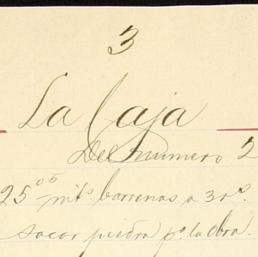 3
La Caja
Del numero 2
25⁰⁵ mtˢ barrenas a 3 rˢ.
sacar piedra pᵃ la obra.